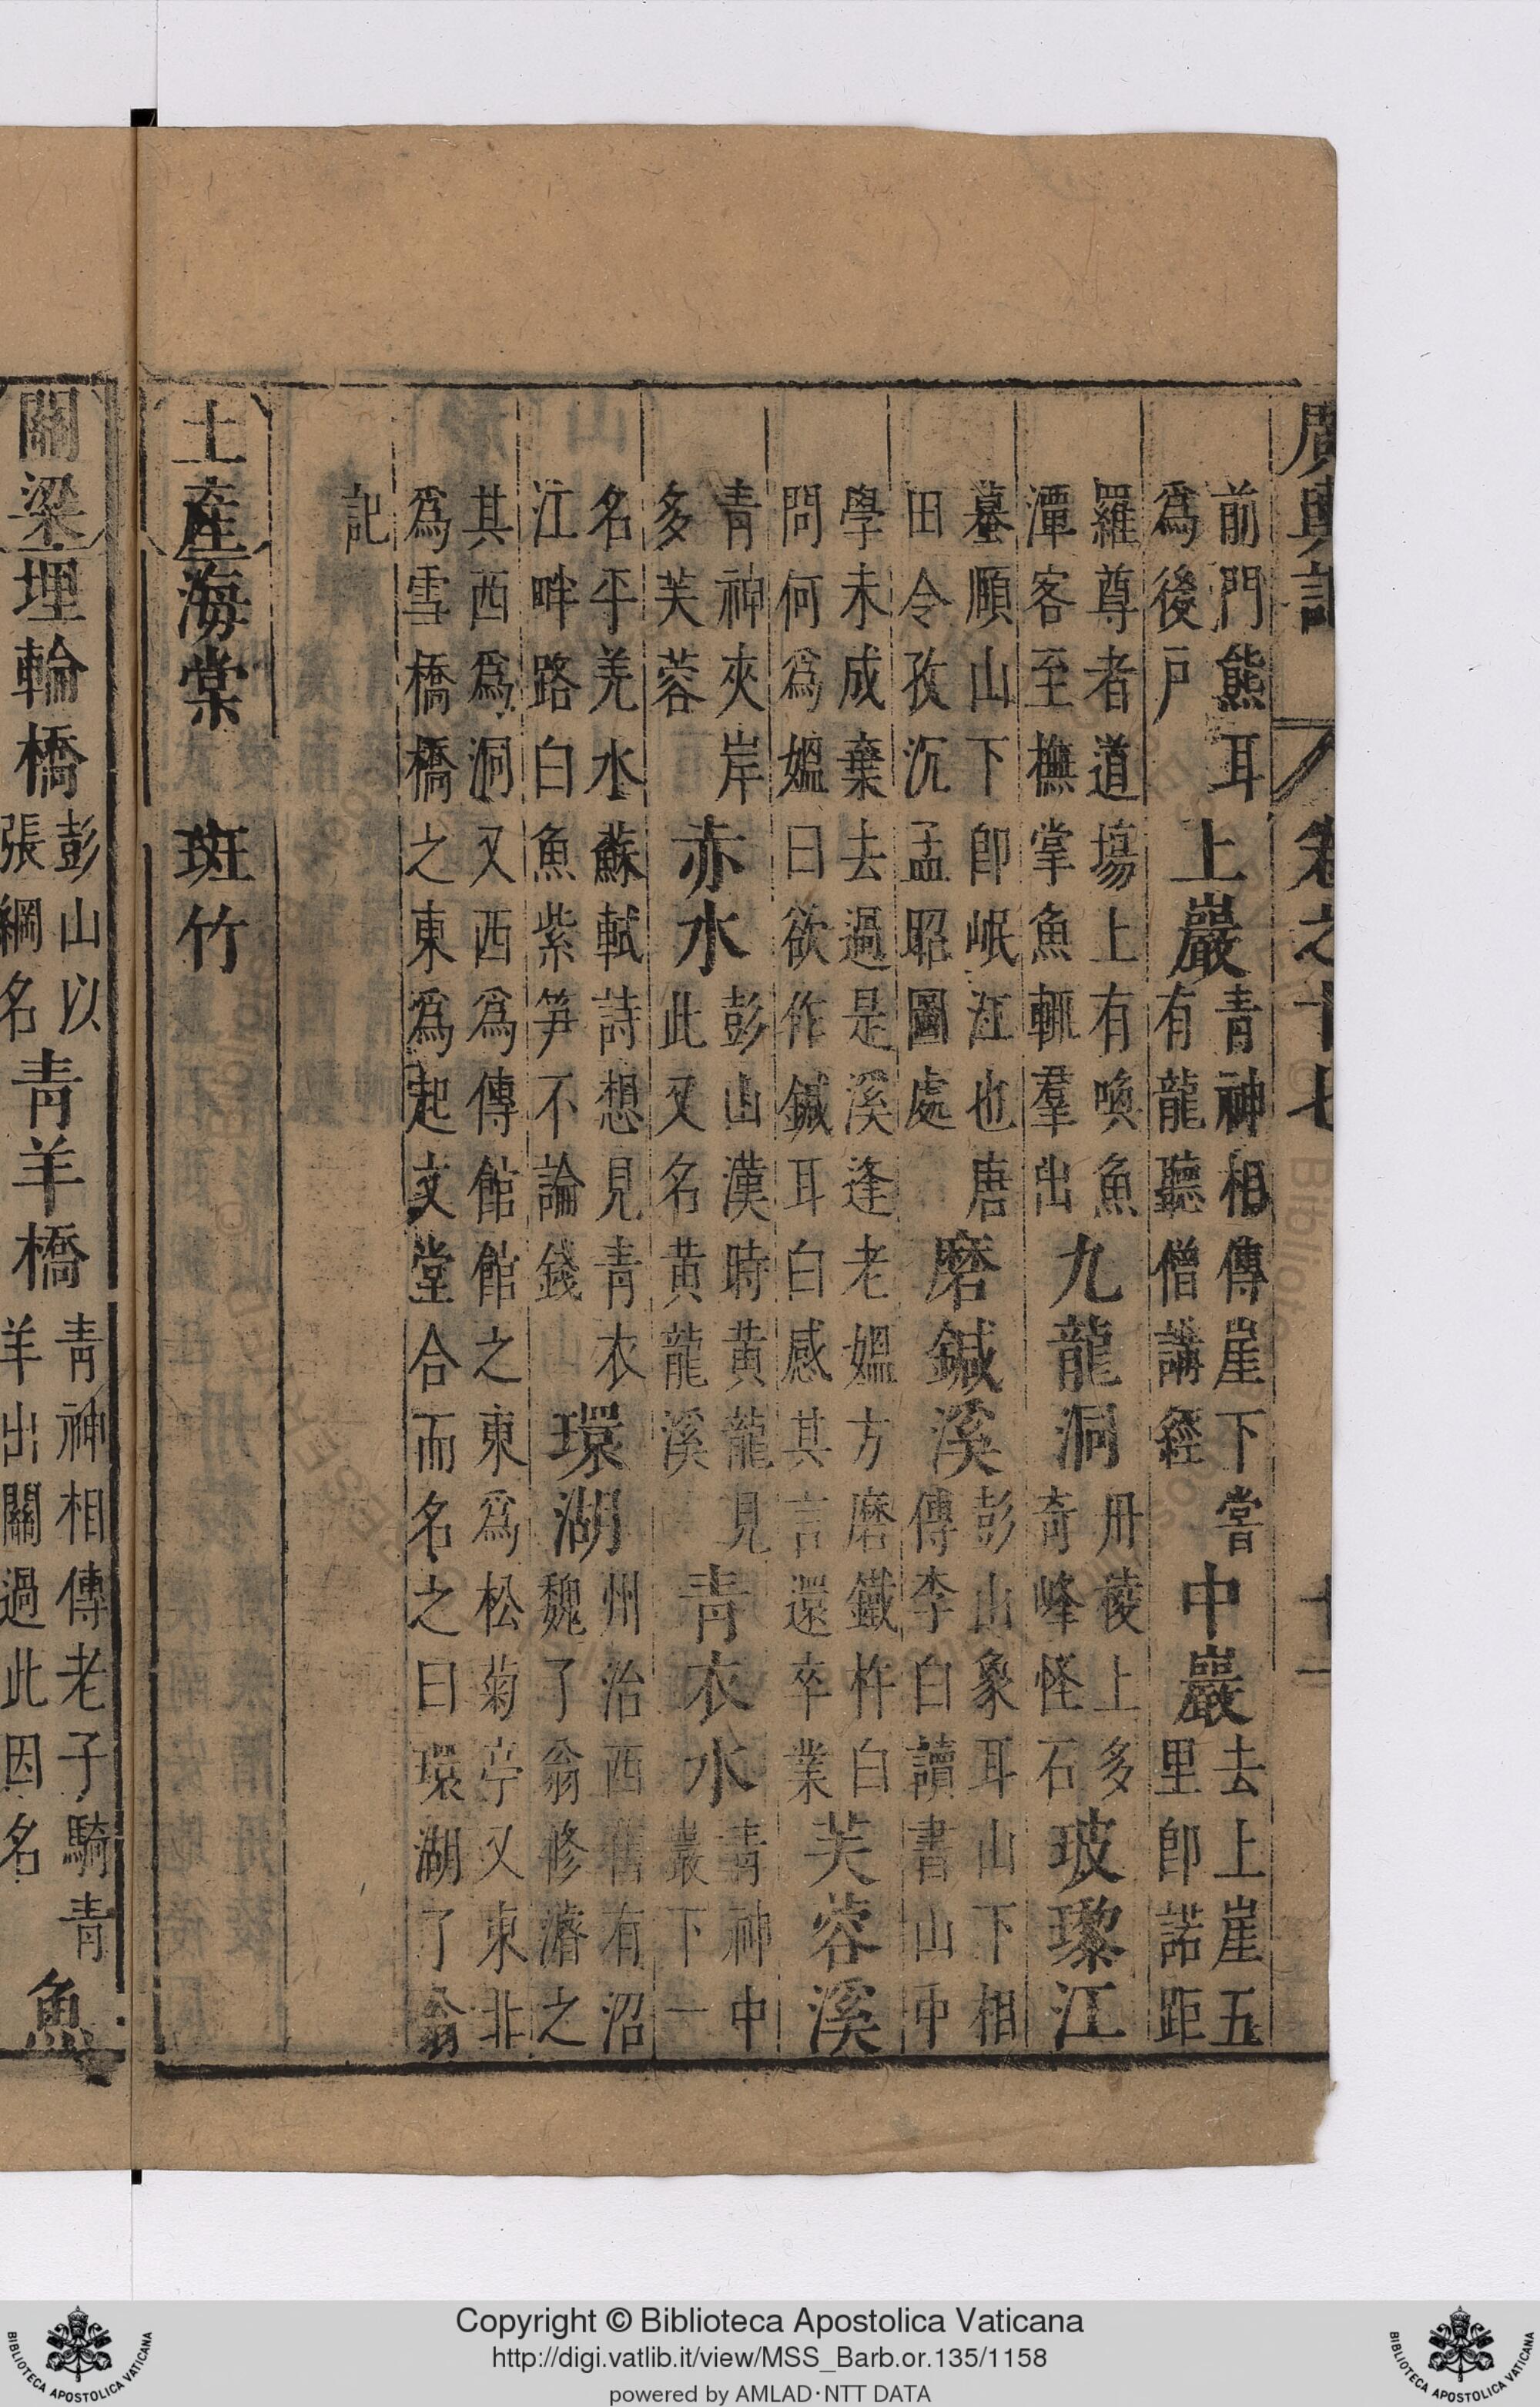 廣輿記 卷之十七 十一
前門熊耳爲後戶上巖青神相傳崖下嘗有龍聽僧講經中巖去上崖五里卽諾距
羅尊者道塲上有喚魚潭客至撫掌魚輒羣出九龍洞丹稜上多奇峰怪石玻瓈江
蟇頤山下卽岷江也唐田令孜沉孟昭圖處磨鍼溪彭山象耳山下相傳李白讀書山中
學未成棄去過是溪逢老媼方磨鐵杵白問何爲媼曰欲作鍼耳白感其言還卒業芙蓉溪
青神夾岸多芙蓉赤水彭山漢時黃龍見此又名黃龍溪青衣水青神中巖下一
名平羌水蘇軾詩想見青衣江畔路白魚紫笋不論錢環湖州治西舊有沼魏了翁修濬之
其西爲洞又西爲傳館館之東爲松菊亭又東北爲雪橋橋之東爲起文堂合而名之曰環湖了翁
記
土產海棠 斑竹
關梁埋輪橋彭山以張綱名青羊橋青神相傳老子騎青羊出關過此因名魚
Copyright © Biblioteca Apostolica Vaticana
http://digi.vatlib.it/view/MSS_Barb.or.135/1158
powered by AMLAD·NTT DATA
BIBLIOTECA APOSTOLICA VATICANA
BIBLIOTECA APOSTOLICA VATICANA